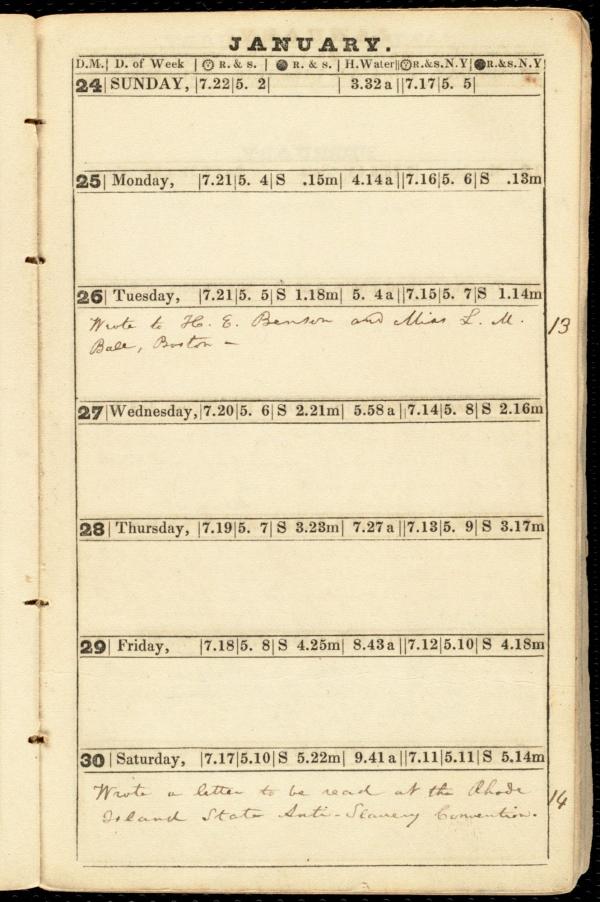 JANUARY.
D.M. | D. of Week | R. & s. | R. & s. | H.Water || R.&s.N.Y | R.&s.N.Y
24 | SUNDAY, | 7.22 | 5. 2 | | 3.32 a || 7.17 | 5. 5 |
25 | Monday, | 7.21 | 5. 4 | S .15m | 4.14 a || 7.16 | 5. 6 | S .13m
26 | Tuesday, | 7.21 | 5. 5 | S 1.18m | 5. 4a || 7.15 | 5. 7 | S 1.14m
Wrote to H. E. Benson and Miss L. M. 13
Ball, Boston –
27 | Wednesday, | 7.20 | 5. 6 | S 2.21m | 5.58 a || 7.14 | 5. 8 | S 2.16m
28 | Thursday, | 7.19 | 5. 7 | S 3.23m | 7.27 a || 7.13 | 5. 9 | S 3.17m
29 | Friday, | 7.18 | 5. 8 | S 4.25m | 8.43 a || 7.12 | 5.10 | S 4.18m
30 | Saturday, | 7.17 | 5.10 | S 5.22m | 9.41 a || 7.11 | 5.11 | S 5.14m
Wrote a letter to be read at the Rhode 14
Island State Anti-Slavery Convention.